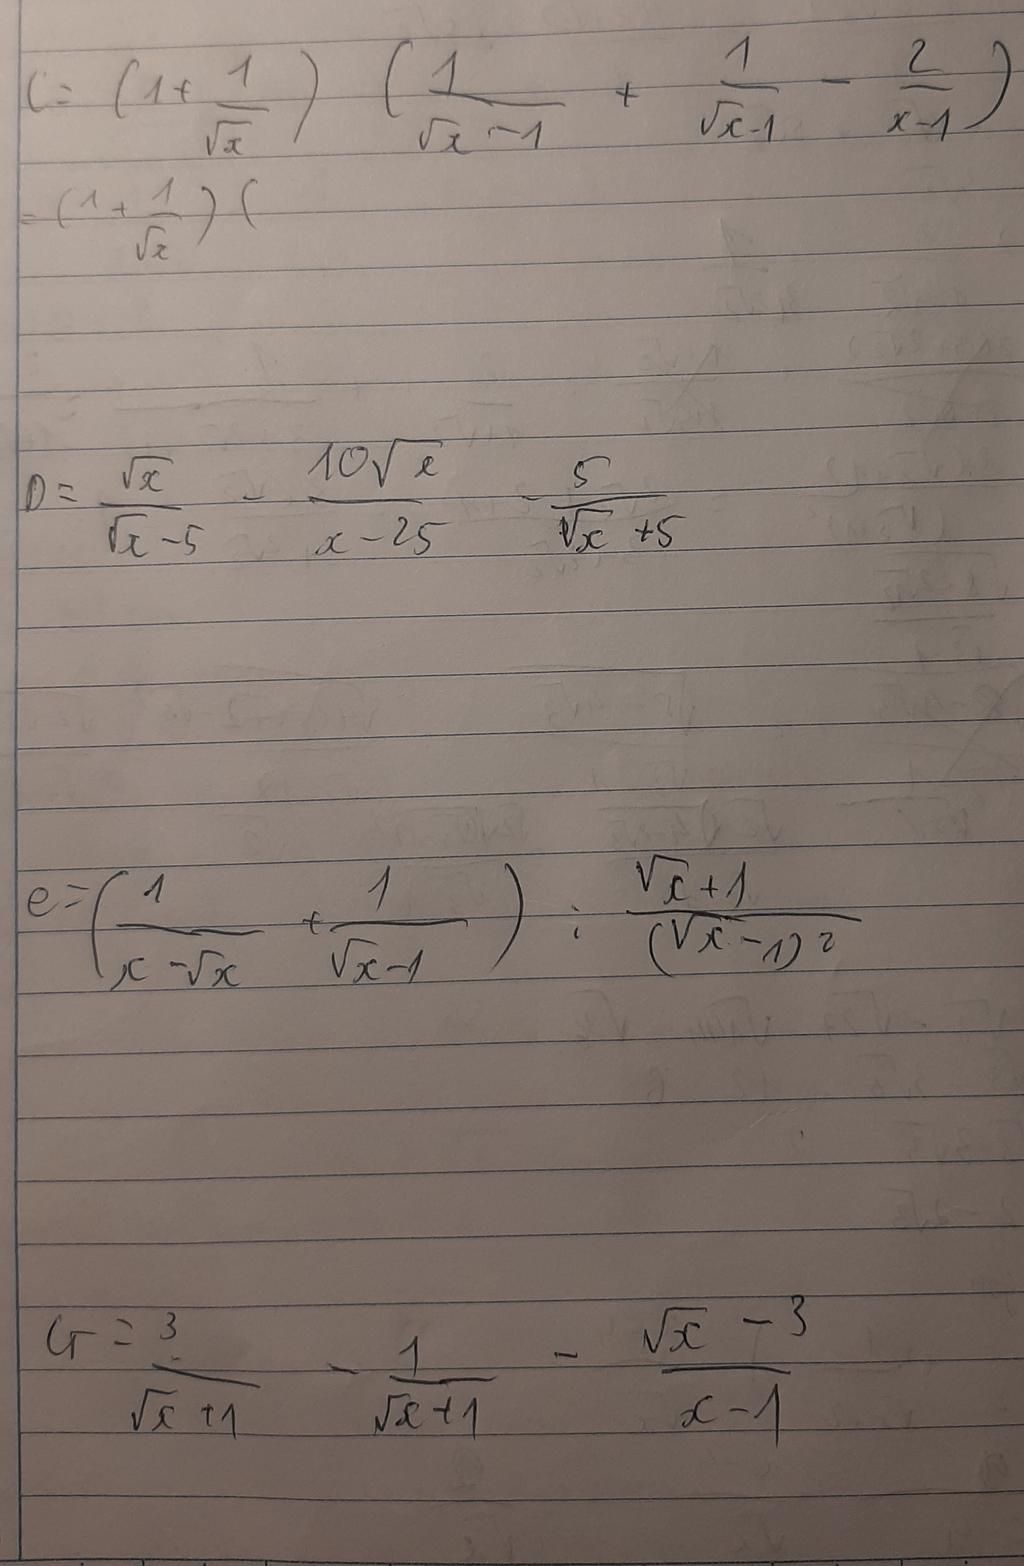 C = (1 + 1/√x) (1/(√x - 1) + 1/(√x - 1) - 2/(x - 1))
= (1 + 1/√x) (
D = √x/(√x - 5) - 10√x/(x - 25) - 5/(√x + 5)
e = (1/(x - √x) + 1/(√x - 1)) : (√x + 1)/(√x - 1)²
G = 3/(√x + 1) - 1/(√x + 1) - (√x - 3)/(x - 1)